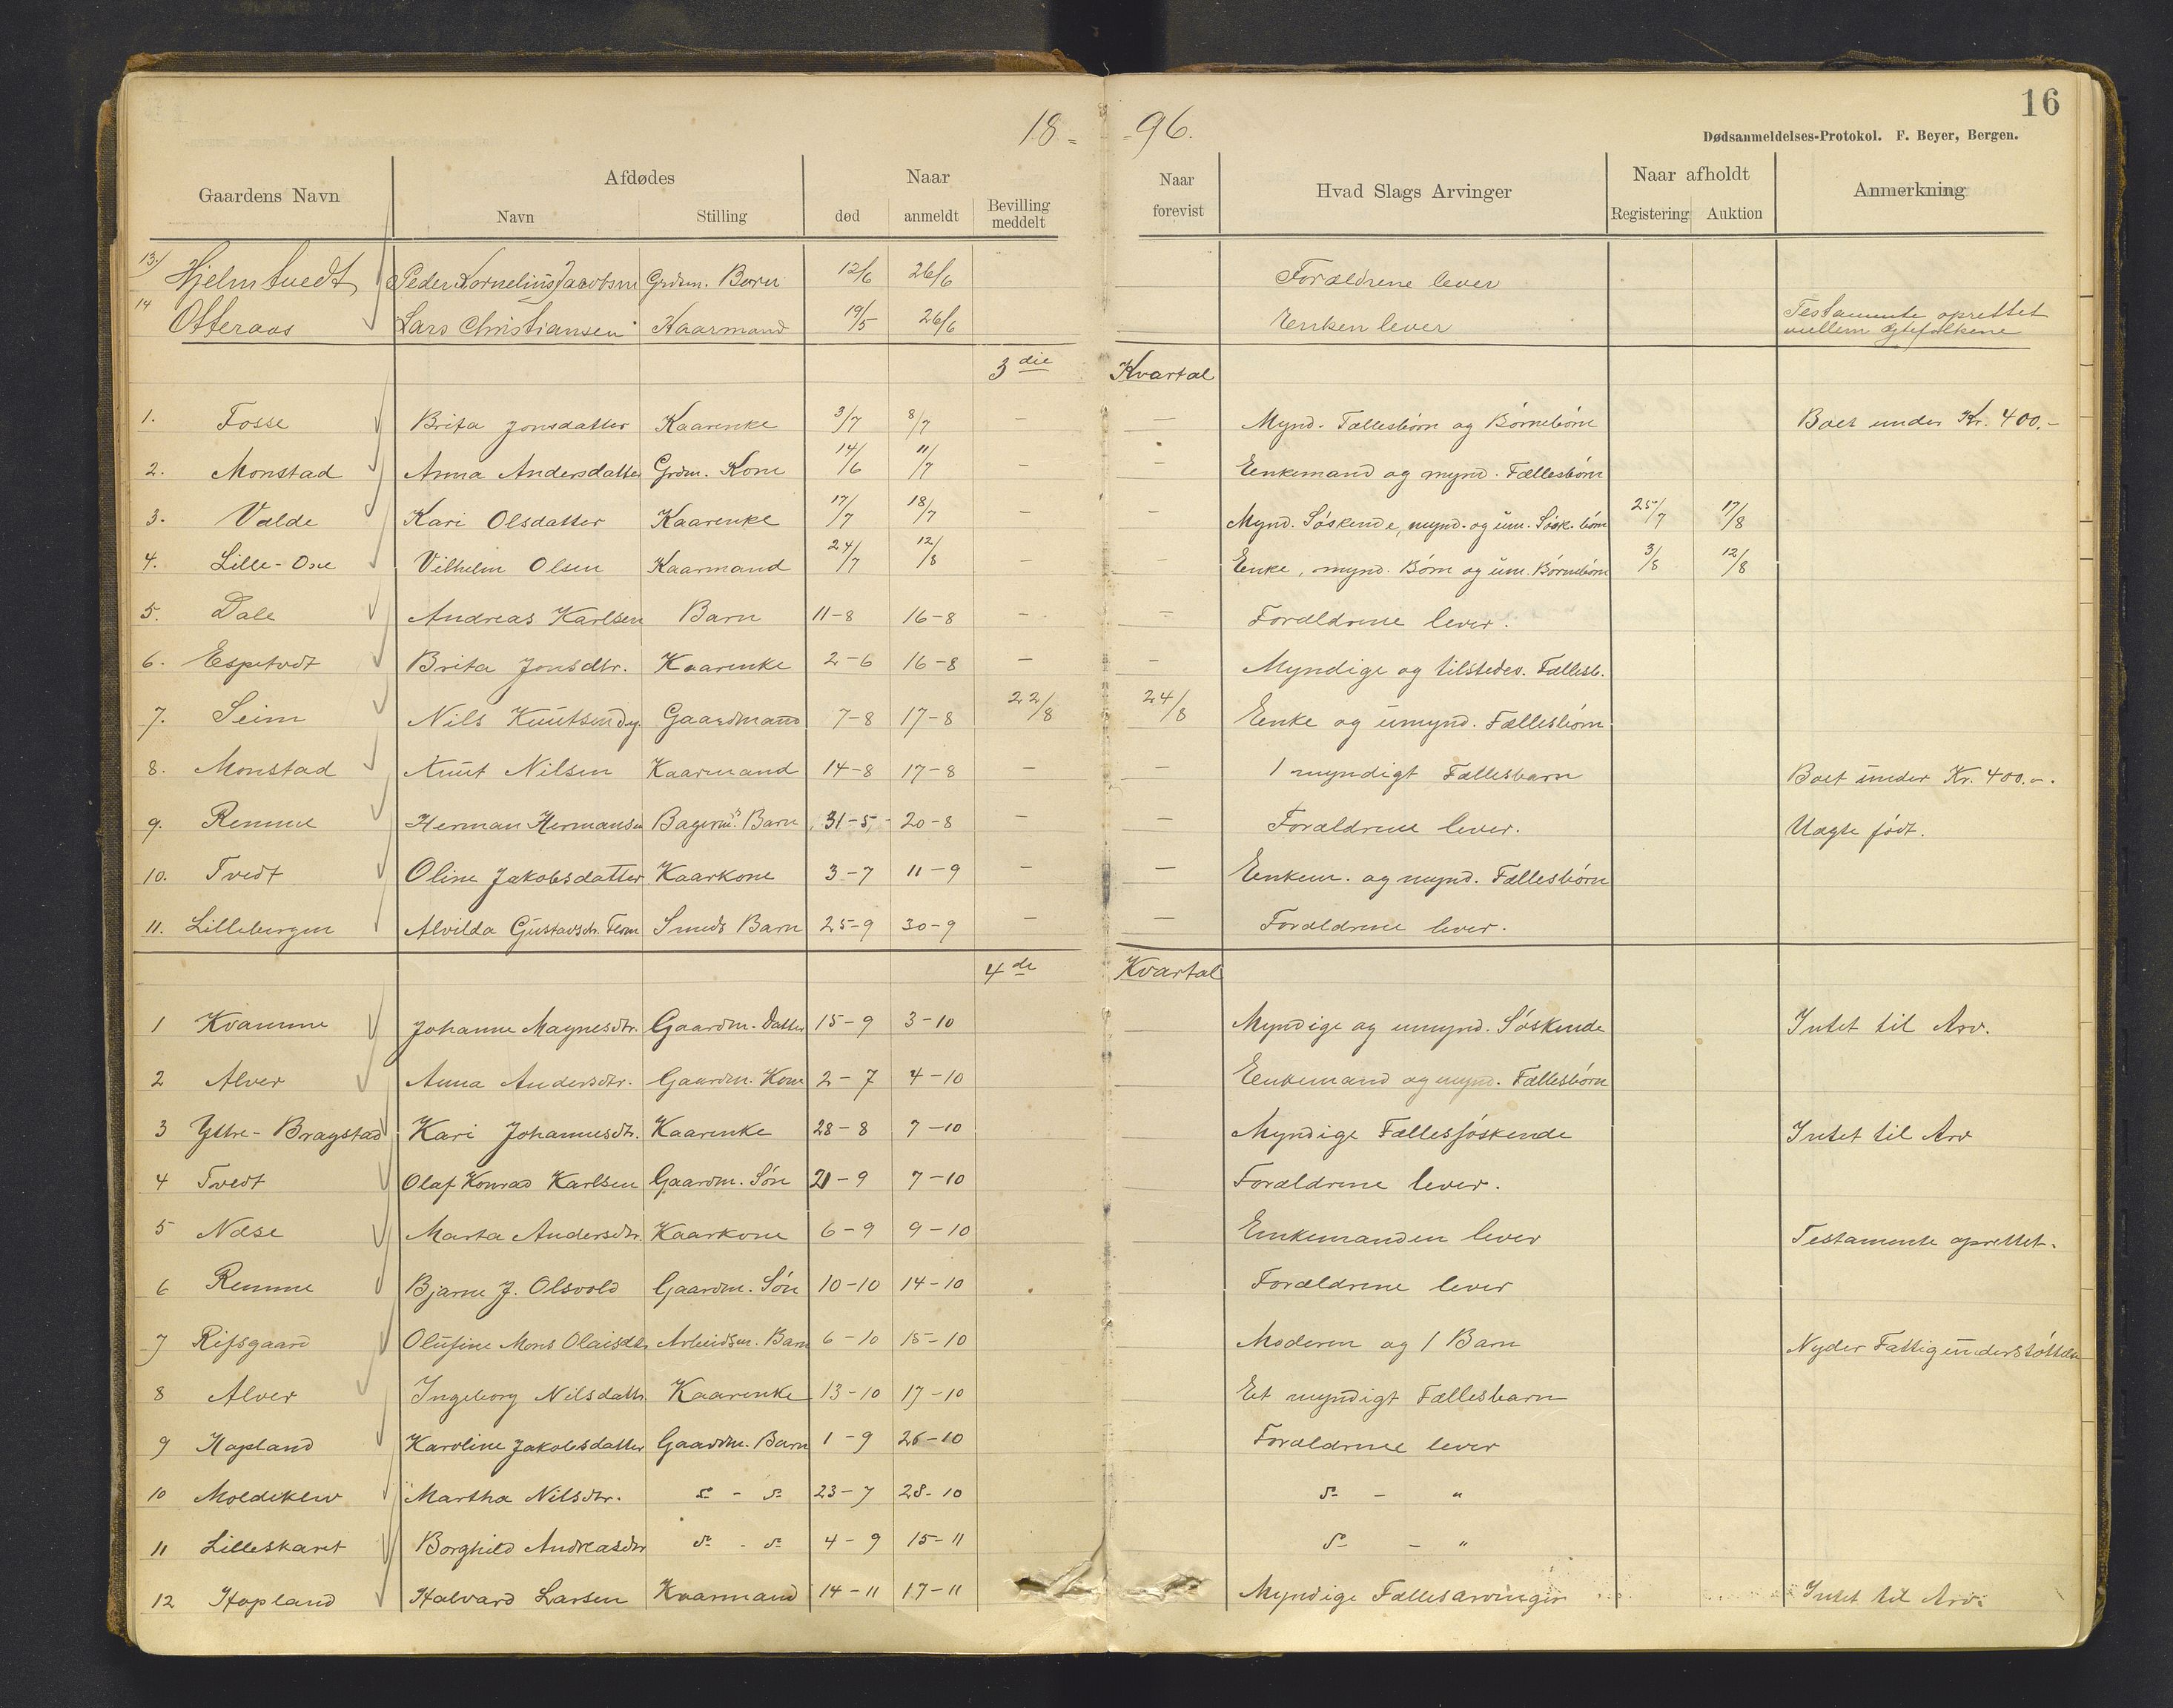 18 = = 96.
16
Dødsanmeldelses-Protokol. F. Beyer, Bergen.
Gaardens Navn | Afdødes | Naar | Naar forevist | Hvad Slags Arvinger | Naar afholdt | Anmerkning
Navn | Stilling | død | anmeldt | Bevilling meddelt | Registering | Auktion
13) Hjelmtvedt | Peder Kornelius Jacobsen | Grdm. Barn | 12/6 | 26/6 | Forældrene lever
14 Otteraas | Lars Christiansen | Kaarmand | 19/5 | 26/6 | Enken lever | Testamente oprettet
mellem Egtefolkene
3die Kvartal
1. Fosse | Brita Jonsdatter | Kaarenke | 3/7 | 8/7 | – | – | Mynd. Fællesbörn og Börnebörn | Boet under Kr. 400.–
2. Monstad | Anna Andersdatter | Grdm. Kone | 14/6 | 11/7 | – | – | Enkemand og mynd. Fællesbörn
3. Valde | Kari Olsdatter | Kaarenke | 17/7 | 18/7 | – | – | Mynd. Söskende, mynd. og um. Sösk. börn | 25/7 | 17/8
4. Lille-Oxe | Vilhelm Olsen | Kaarmand | 24/7 | 12/8 | – | – | Enke, mynd. Börn og um. Börnebörn | 3/8 | 12/8
5. Dale | Andreas Karlsen | Barn | 11-8 | 16-8 | – | – | Forældrene lever.
6. Espetvedt | Brita Jonsdtr. | Kaarenke | 2-6 | 16-8 | – | – | Myndige og tilstedev. Fællesb.
7. Seim | Nils Knutsen d.y. | Gaardmand | 7-8 | 17-8 | 22/8 | 24/8 | Enke og umynd. Fællesbörn
8. Monstad | Knut Nilsen | Kaarmand | 14-8 | 17-8 | – | – | 1 myndigt Fællesbarn | Boet under Kr. 400.–.
9. Remme | Herman Hermansen | Bagerm.s Barn | 31-5 | 20-8 | – | – | Forældrene lever. | Uægte födt.
10. Tvedt | Oline Jakobsdatter | Kaarkone | 3-7 | 11-9 | – | – | Enkem. og mynd. Fællesbörn
11. Lillebergen | Alvilda Gustavsdr. | Smeds Barn | 25-9 | 30-9 | – | – | Forældrene lever.
4de Kvartal
1 Kvamme | Johanne Magnesdtr. | Gaardm. Datter | 15-9 | 3-10 | Myndige og umynd. Söskende | Intet til Arv.
2 Alver | Anna Andersdtr. | Gaardm. Kone | 2-7 | 4-10 | Enkemand og mynd. Fællesbörn
3 Yttre-Bragstad | Kari Johannesdtr. | Kaarenke | 28-8 | 7-10 | Myndige Fællessöskende | Intet til Arv
4 Tvedt | Olaf Konrad Karlsen | Gaardm. Sön | 21-9 | 7-10 | Forældrene lever.
5 Næse | Marta Andersdtr. | Kaarkone | 6-9 | 9-10 | Enkemanden lever | Testamente oprettet.
6 Remme | Bjarne J. Olsvold | Gaardm. Sön | 10-10 | 14-10 | Forældrene lever
7 Risgaard | Olufine Mons Olaisdtr | Arbeidsm. Barn | 6-10 | 15-10 | Moderen og 1 Barn | Nyder Fattigunderstöttelse
8 Alver | Ingeborg Nilsdatr. | Kaarenke | 13-10 | 17-10 | Et myndigt Fællesbarn
9 Hopland | Karoline Jakobsdatter | Gaardm. Barn | 1-9 | 26-10 | Forældrene lever
10 Moldeklev | Martha Nilsdtr. | do - do | 23-7 | 28-10 | do - "
11 Lilleskaret | Borghild Andreasdtr | do - do | 4-9 | 15-11 | do - "
12 Hopland | Halvard Larsen | Kaarmand | 14-11 | 17-11 | Myndige Fællesarvinger | Intet til Arv.